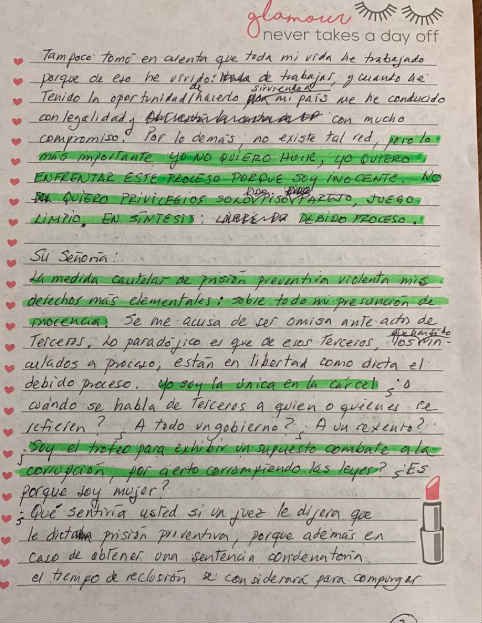 glamour
never takes a day off
Tampoco tomó en cuenta que toda mi vida he trabajado
porque de eso he vivido: de trabajar, y cuando he
sirviendo a
Tenido la oportunidad de hacerlo mi país me he conducido
con legalidad y con mucho
compromiso. Por lo demás, no existe tal red, pero lo
más importante yo NO QUIERO HUIR, yo QUIERO
ENFRENTAR ESTE PROCESO PORQUE SOY INOCENTE. NO
QUIERO PRIVILEGIOS SOLO PISO PAREJO, JUEGO
LIMPIO, EN SÍNTESIS: DEBIDO PROCESO.
Su Señoría:
La medida cautelar de prisión preventiva violenta mis
derechos más elementales: sobre todo mi presunción de
inocencia. Se me acusa de ser omisa ante actos de
Terceros, lo paradójico es que de esos Terceros, los vin-
culados a proceso, están en libertad como dicta el
debido proceso. yo soy la única en la cárcel ¿o
cuándo se habla de Terceros a quien o quiénes se
refieren? ¿A todo un gobierno? ¿A un sexenio?
¿Soy el trofeo para exhibir un supuesto combate a la
corrupción, por cierto corrompiendo las leyes? ¿ES
porque soy mujer?
¿Qué sentiría usted si un juez le dijera que
le dicta prisión preventiva, porque además en
caso de obtener una sentencia condenatoria
el tiempo de reclusión se considerará para compurgar